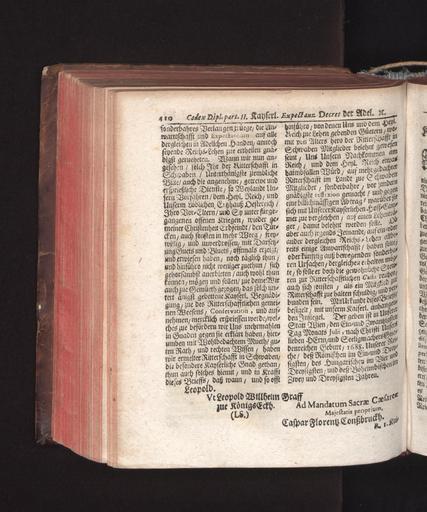 410 Codex Dipl. part. II. Kayserl. Expectanz Decret der Adel. ꝛc.
sonderbahres Verlangen trüge, die An-
wartschafft und Expectantien auf alle
dergleichen in Adelichen Handen, annoch
stehende Reichs-Lehen zur erhielten gnä-
digst geruheten. Wann wir nun an-
gesehen, solch Ihr der Ritterschafft in
Schwaben, Unterthänigste zimbliche
Bitte, auch die angenehme, getreue und
ersprießliche Dienste, so Weylandt Un-
sern Vorfahren, dem Heyl. Reich, und
Unserm löblichen Ertzhauß Oesterreich,
Ihre Vor-Eltern, und Sie unter fürge-
gangenen offenen Kriegen, wieder ge-
meiner Christenheit Erbfeindt, den Tür-
cken, auch sonsten in mehr Weeg, frey-
willig, und unverdrossen, mit Darset-
zung Guets und Bluets, offtmals erzeigt,
und erwiesen haben, noch täglich thun,
und hinfüro nicht weniger zuethun, sich
gehorsambst anerbieten, auch wohl thun
können, mögen und sollen, zur deme Wir
auch zue Gemüth gezogen, das solch un-
sere
Kayserl. Begnädi-
gung, zue des Ritterschafftlichen gemei-
nen Weesens, Conservation, und auf-
nehmen, mercklich erspriessen werde, wel-
ches zue befördern wir Uns mehrmahlen
in Gnaden gegen sie erklärt haben, hier-
umben mit Wohlbedachtem Mueth, gu-
ten Rath, und rechten Wissen, haben
wir ermelter Ritterschafft in Schwaben,
die besondere Kayserliche Gnad gethan,
thun auch solches hiemit, und in Krafft
dieses Brieffs, daß wann, und so offt
hinführo, von denen Uns und dem Heyl.
Reich zue Lehen gehenden Güetern, wo-
mit von Alters hero der Ritterschafft in
Schwaben Mitglieder belehnt gewesen
seint, Uns Unsern Nachkommen am
Reich, und dem Heyl. Reich etwas
haimbfallen Würd, auf mehrgedachter
Ritterschafft im Landt zue Schwaben
Mitglieder, sonderbahre, vor andern
gnädigste reflexion gemacht, und gegen
eine billichmäßigen Abtrag,
sich mit Unserer Kayserlichen Hoff-Cam-
mer zue vergleichen, auf einen Lehenfol-
ger, damit belehnt werden solle. Wo
aber auch irgends Jemandt, auf ein- oder
ander dergleichen Reichs-Lehen allbe-
reits einige Anwartschafft, haben solte,
oder künfftig auß bewegenden sonderba-
ren Ursachen, dergleichen erhalten möch-
te, so solle er doch die gewohnliche Steu-
ren zue Ritterschafftlichen Cassa raichen,
auch sich sonsten, als ein Mitglied zur
Ritterschafft zue halten schuldig, und ver-
bunden sein. Mit Urkundt dieses Brieffs
besiglt, mit unserm Kayserl. anhangen-
den Innsigel. Der geben ist in Unserer
Statt Wien, den Ein und Zwantzigsten
Tag Monats Julii, nach Christi Unsers
lieben HErrn, und Seeligmachers Gna-
denreichen Geburt, 1688. Unserer Rei-
che, deß Römischen im Ein und Dreys-
sigsten, des Hungarischen im Vier und
Dreysigsten, und deß Böheimbischen im
Zwey und Dreysigsten Jahren.
Leopold.
Vt Leopold Willheim Graff
zue KönigsEckh.
(LS.)
Ad Mandatum Sacræ Cæsareæ
Majestatis proprium,
Caspar Florentz Conßbruckh.